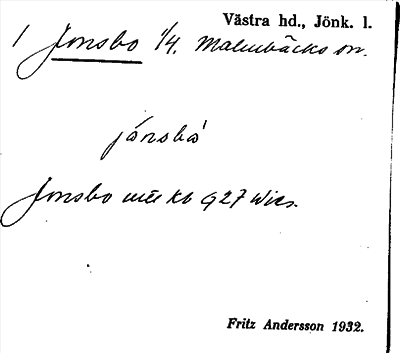 Västra hd., Jönk. l.
1 Jonsbo 1/4. Malmbäcks sn.
jónsbo
Jonsbo
Fritz Andersson 1932.